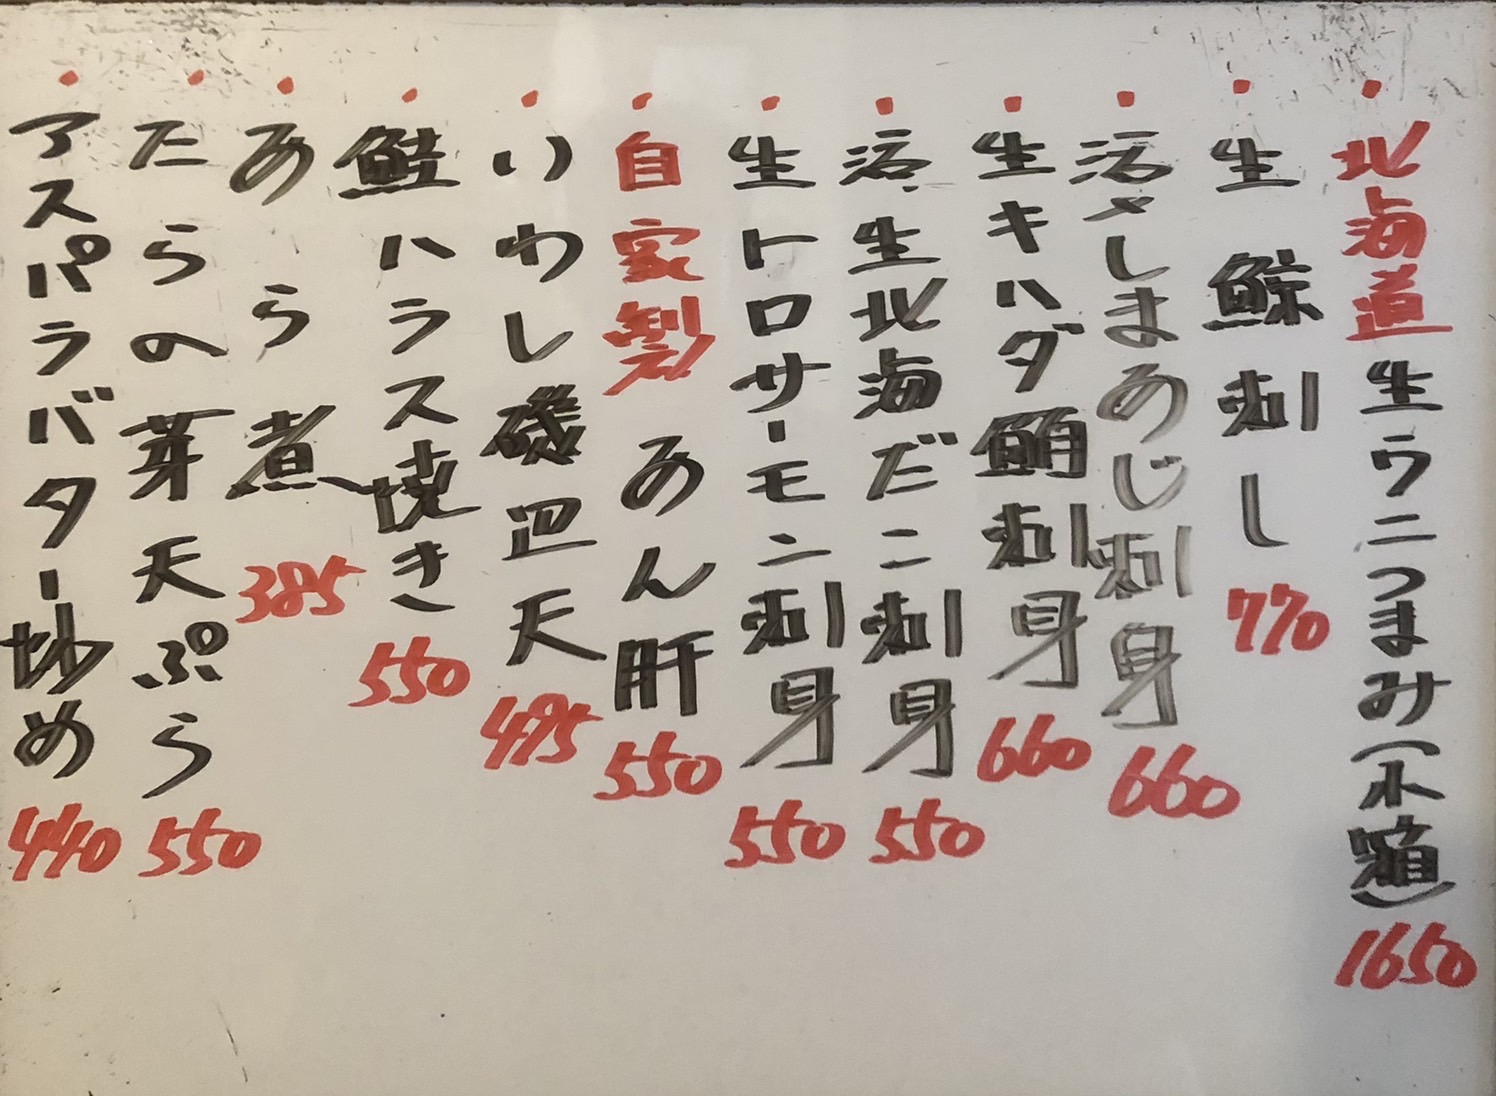 ・北海道生ウニつまみ(木箱)1650
・生鯨刺し770
・活〆しまあじ刺身660
・生キハダ鮪刺身660
・活生北海だこ刺身550
・生トロサーモン刺身550
・自家製あん肝550
・いわし磯辺天495
・鮭ハラス焼き550
・あら煮385
・たらの芽天ぷら550
・アスパラバター炒め440